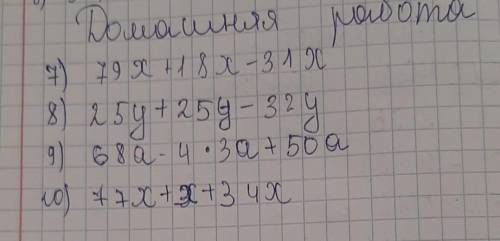 Домашняя работа
7) 79x+18x-31x
8) 25y+25y-32y
9) 68a-4·3a+50a
10) 77x+x+34x